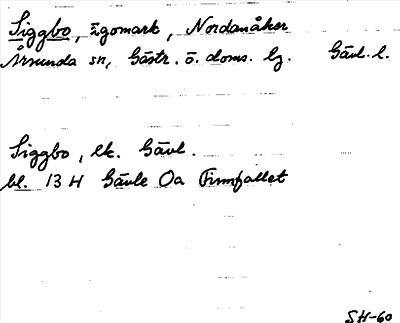 Siggbo, ägomark, Nordanåker
Årsunda sn, Gästr. ö. doms. hg. Gävl. l.
Siggbo, ek. Gävl.
bl. 13 H Gävle Oa Finnfallet
SH-60